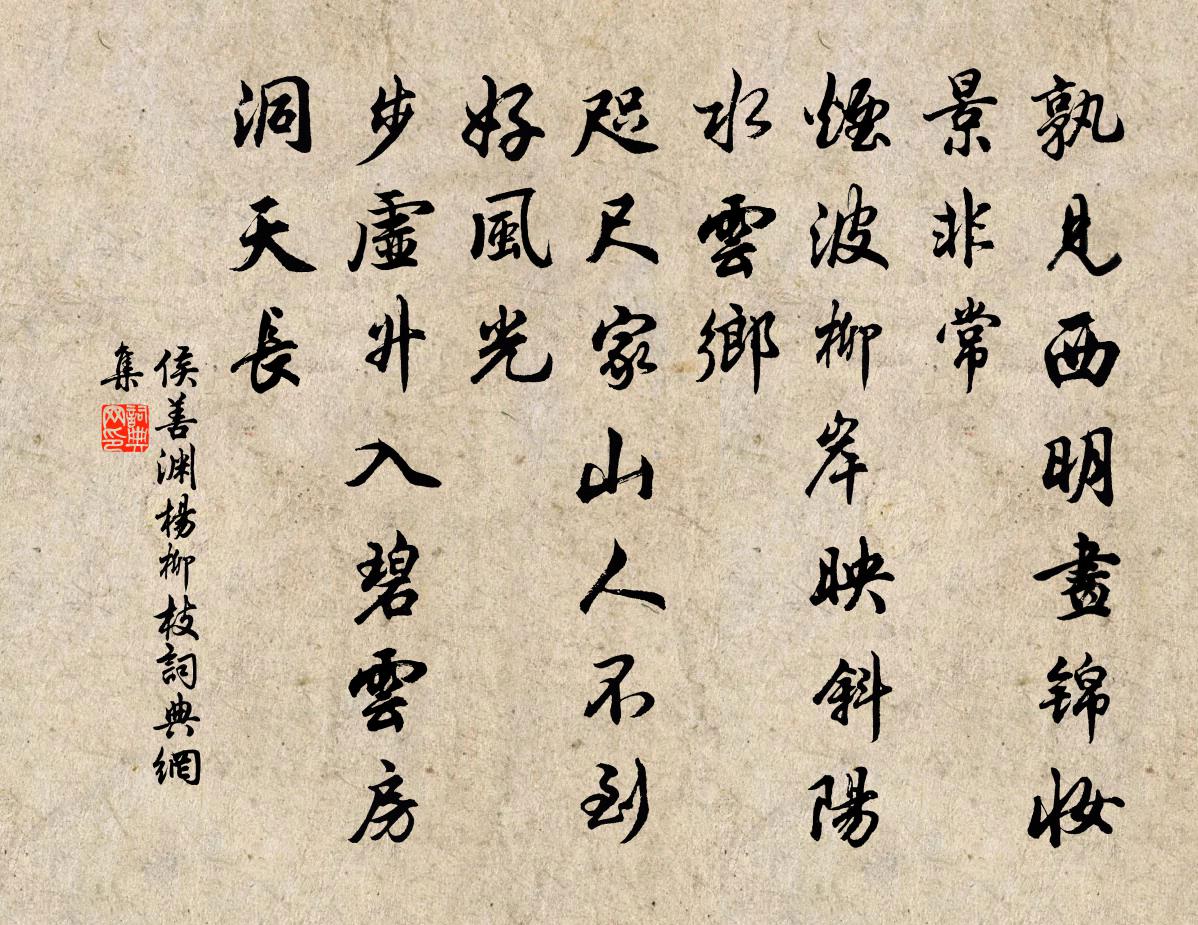 孰見西明畫錦妝
景非常
煙波柳岸映斜陽
水雲鄉
咫尺家山人不到
好風光
步虛升入碧雲房
洞天長
侯善淵楊柳枝詞典網
集
詞典网印